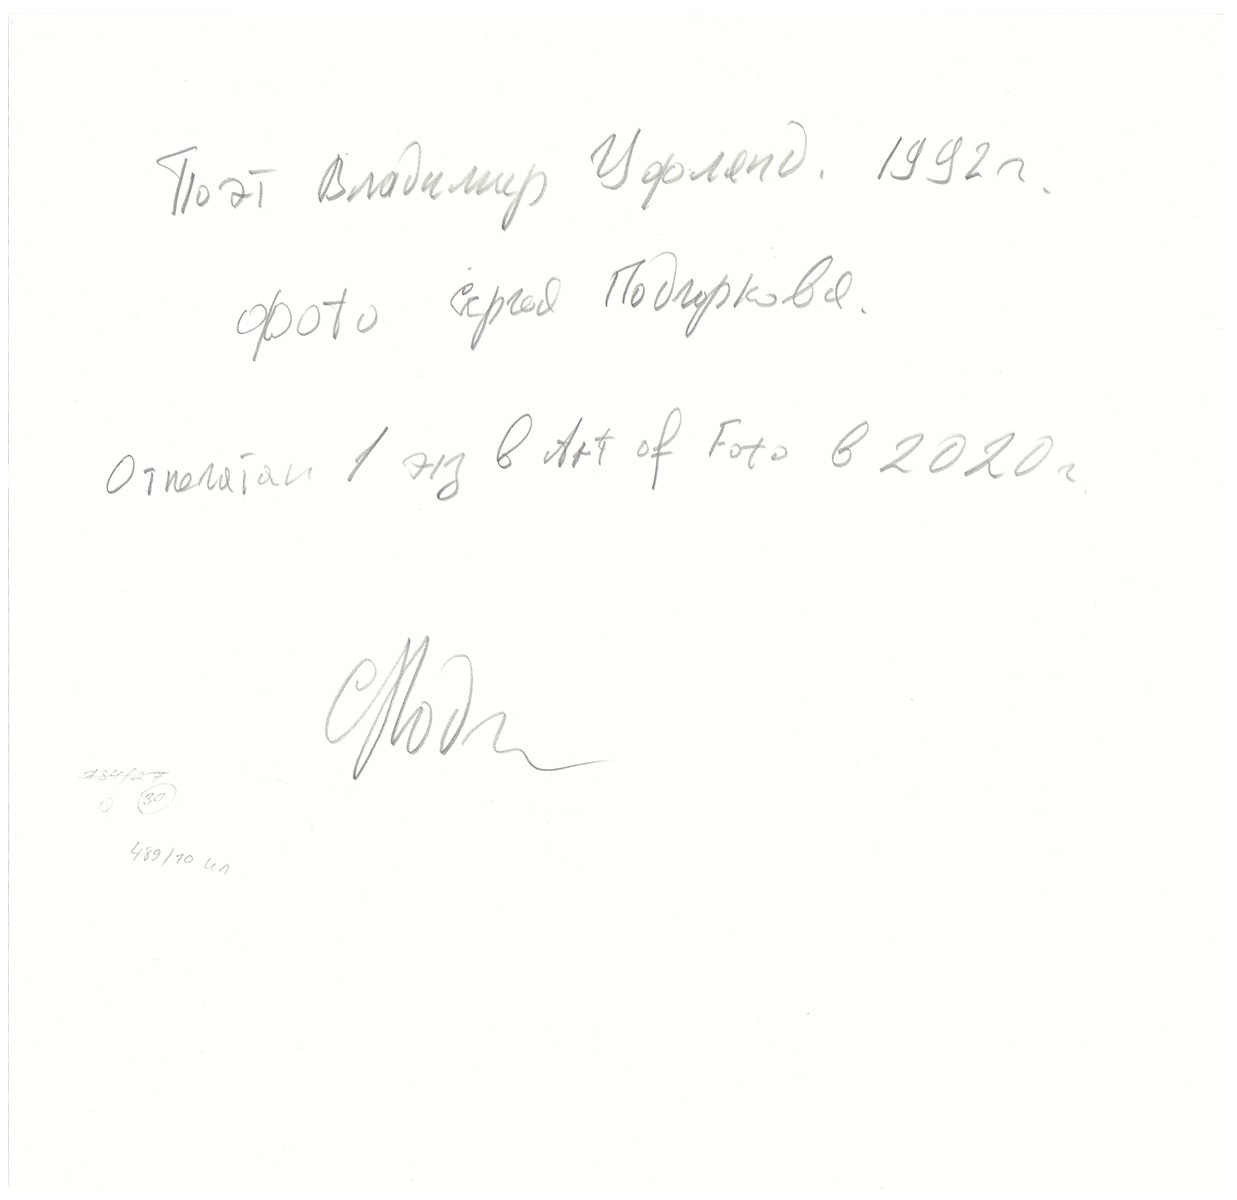 Поэт Владимир Уфлянд. 1992 г.
фото Сергея Подгоркова.
Отпечатан 1 экз в Art of Foto в 2020 г.
734/27
30
489/10 ил